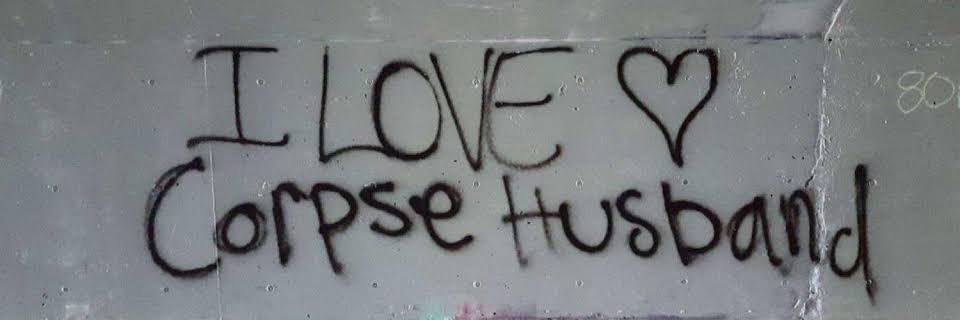 I LOVE ♡
Corpse Husband